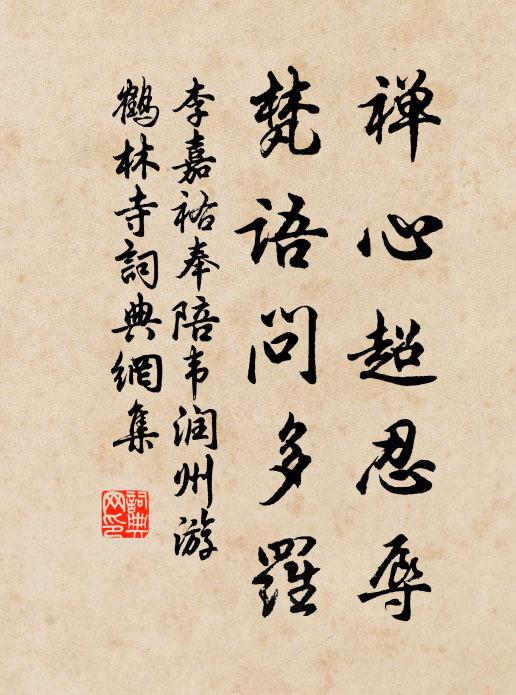 禅心超忍辱
梵语问多罗
李嘉祐奉陪韦润州游
鹤林寺詞典網集
詞典网印